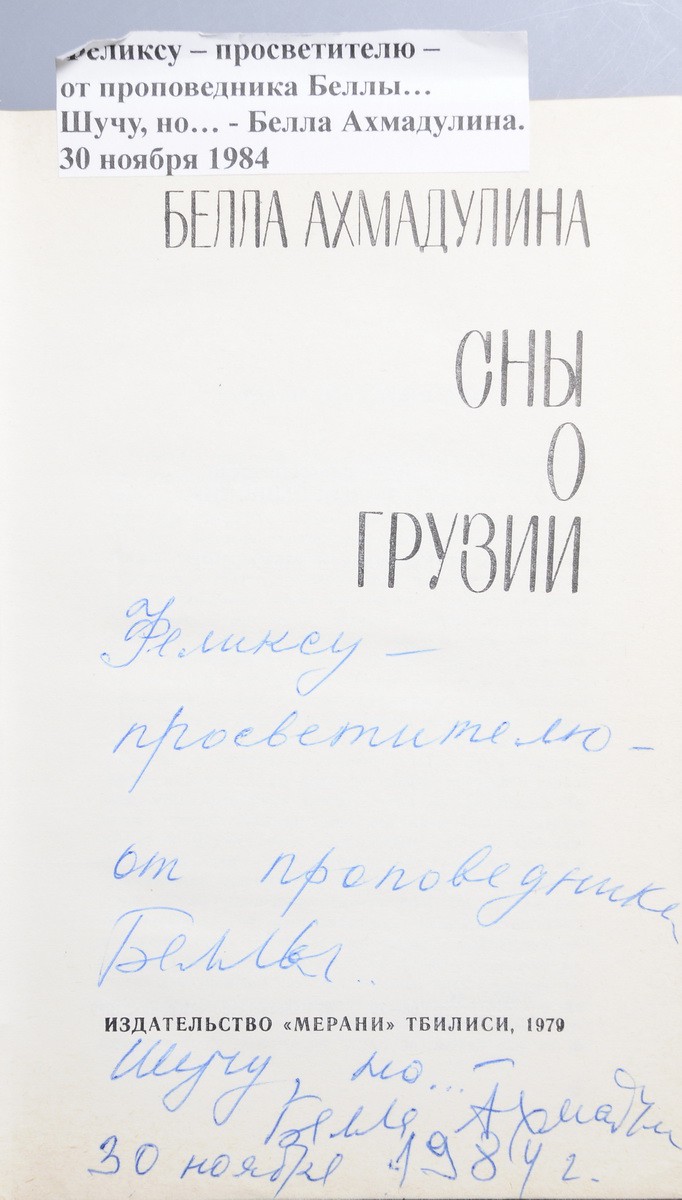 Феликсу – просветителю –
от проповедника Беллы…
Шучу, но… - Белла Ахмадулина.
30 ноября 1984
БЕЛЛА АХМАДУЛИНА
СНЫ
О
ГРУЗИИ
Феликсу –
просветителю –
от проповедника
Беллы...
ИЗДАТЕЛЬСТВО «МЕРАНИ» ТБИЛИСИ, 1979
Шучу, но... –
Белла Ахмадули
30 ноября 1984 г.